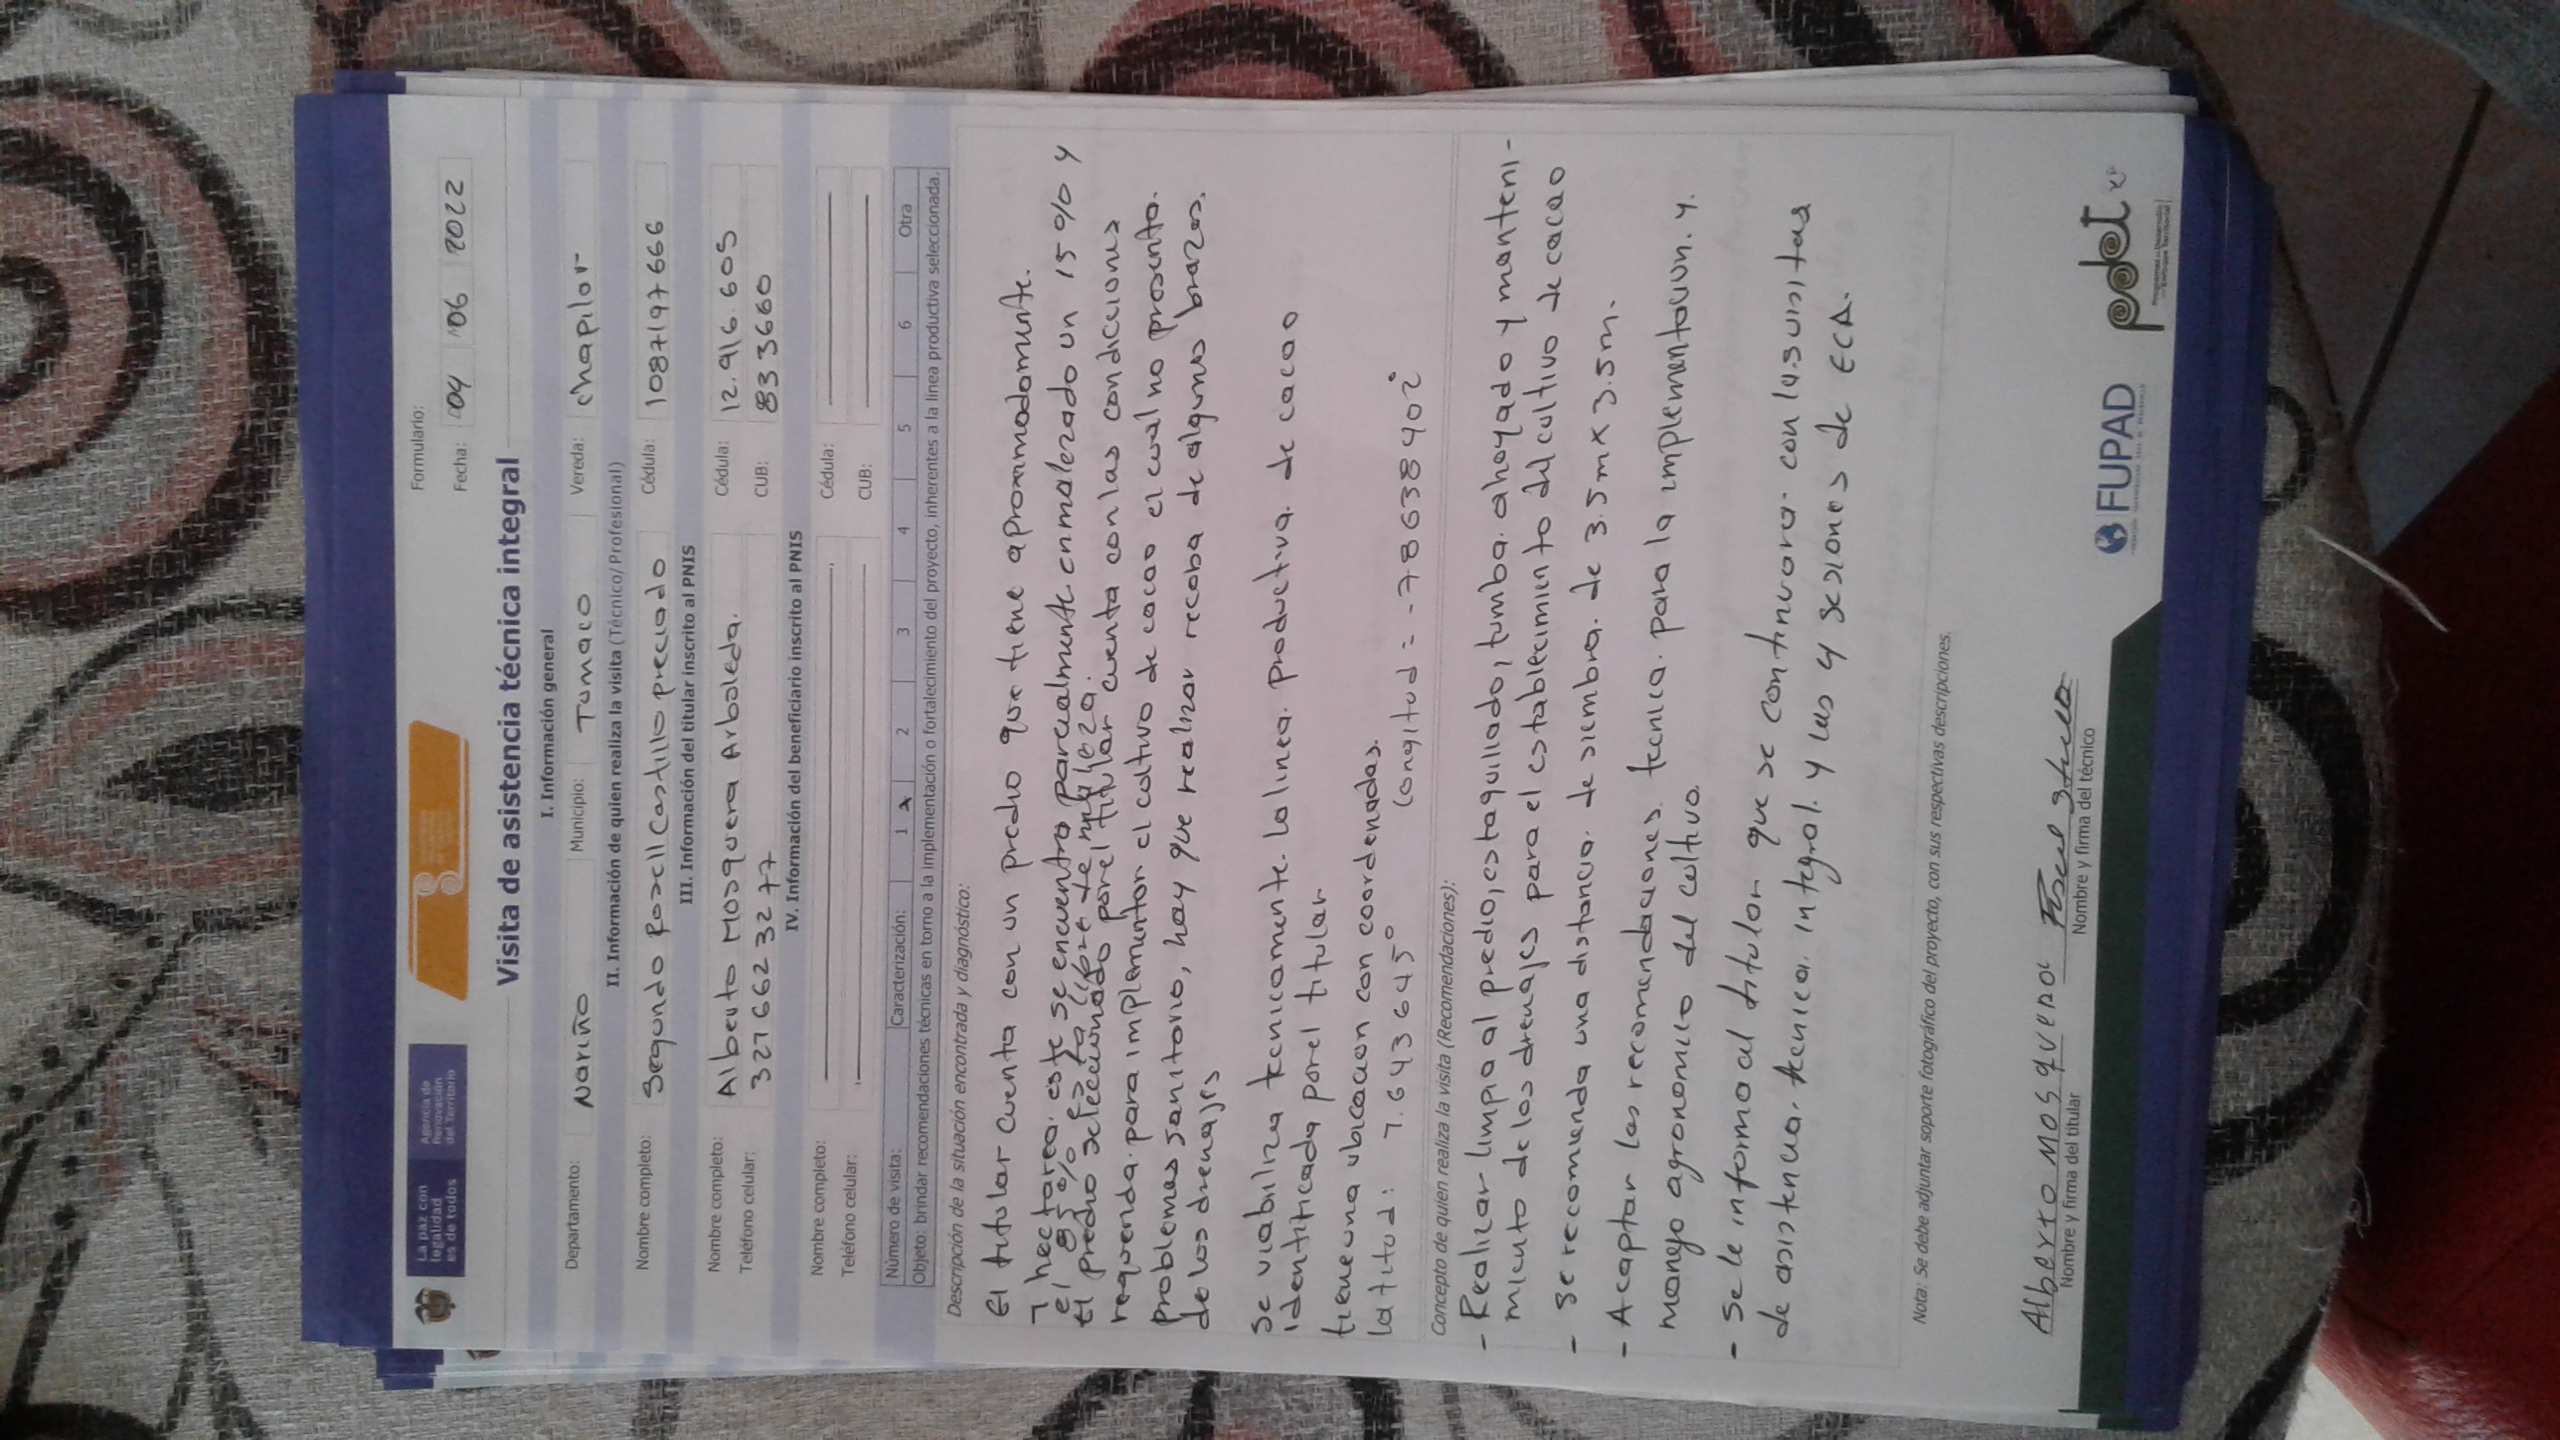 La paz con
legalidad
es de todos
Agencia de
Renovación
del Territorio
Formulario:
Fecha: 04 06 2022
Visita de asistencia técnica integral
I. Información general
Departamento: Nariño Municipio: Tumaco Vereda: chapilor
II. Información de quien realiza la visita (Técnico/Profesional)
Nombre completo: Segundo Rosell Castillo preciado Cédula: 1087197666
III. Información del titular inscrito al PNIS
Nombre completo: Alberto Mosquera Arboleda. Cédula: 12.916.605
Teléfono celular: 3276623277 CUB: 833660
IV. Información del beneficiario inscrito al PNIS
Nombre completo: Cédula:
Teléfono celular: CUB:
Número de visita: Caracterización: 1 x 2 3 4 5 6 Otra
Objeto: brindar recomendaciones técnicas en torno a la implementación o fortalecimiento del proyecto, inherentes a la línea productiva seleccionada.
Descripción de la situación encontrada y diagnóstico:
El titular cuenta con un predio que tiene aproximadamente.
7 hectarea. este se encuentra parcialmente enmalezado un 15% y
el 85% esta libre de maleza.
El predio seleccionado por el titular cuenta con las condiciones
requerida. para implementar el cultivo de cacao el cual no presenta.
problemas sanitario, hay que realizar recaba de algunos brazos.
de los drenajes
Se viabiliza tecnicamente. la linea. productiva. de cacao
identificada por el titular
tiene una ubicacion con coordenadas.
latitud: 1.643645° longitud = -78638402°
Concepto de quien realiza la visita (Recomendaciones):
- Realizar limpia al predio, estaquillado, tumba. ahoyado y manteni-
miento de los drenajes para el establecimiento del cultivo de cacao
- se recomienda una distancia. de siembra. de 3.5m x 3.5m.
- Acaptar las recomendaciones tecnica. para la implementacion. y.
manejo agronomico del cultivo.
- Se le informa al titular que se continuara. con las visitas
de asistencia. tecnica. integral. y las 4 sesiones de ECA.
Nota: Se debe adjuntar soporte fotográfico del proyecto, con sus respectivas descripciones.
Alberto Mosquera
Nombre y firma del titular
Nombre y firma del técnico
FUPAD
pdet